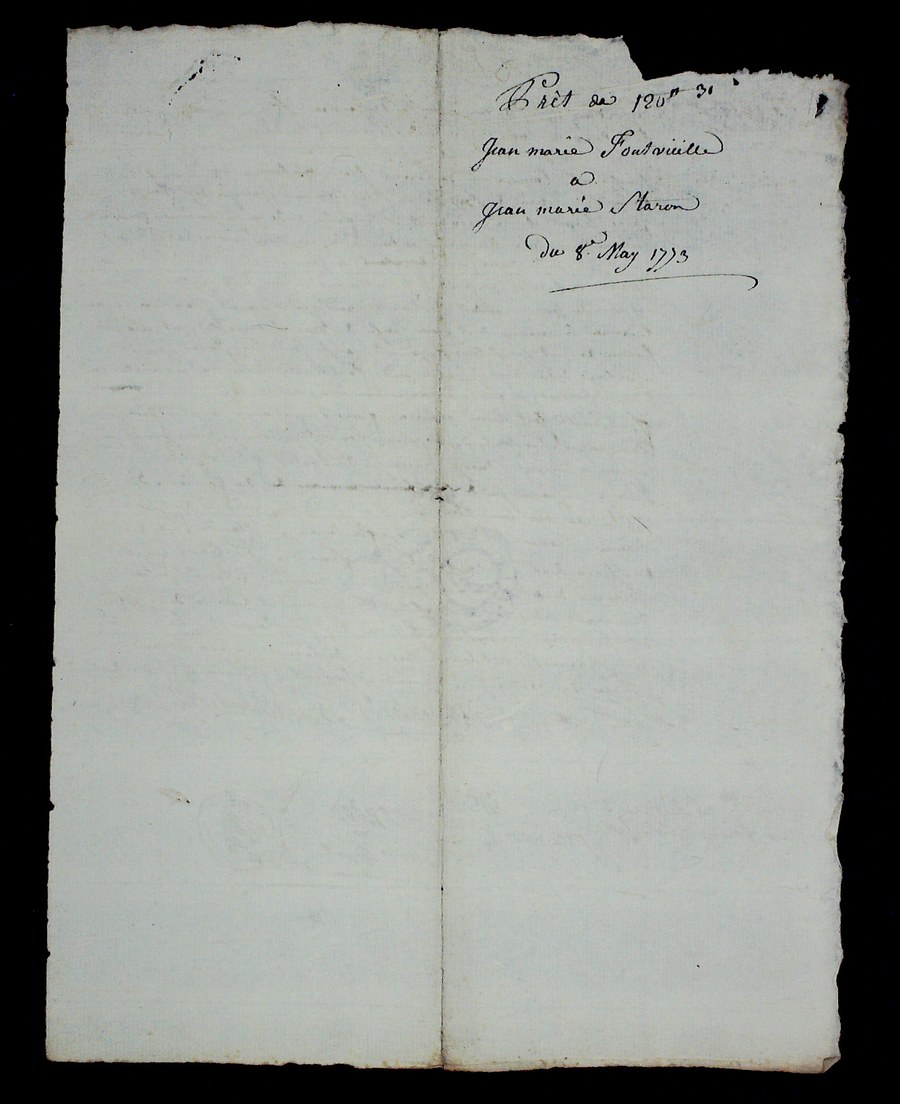 Prêt de 120ᵗᵗ 3ˢ
Jean marie Fontvieille
a
Jean marie Staron
du 8ᵉ May 1773